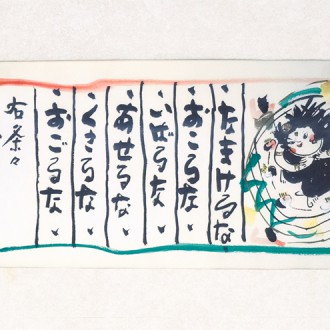 なまけるな
おこるな
いばるな
あせるな
くさるな
おごるな
右条々